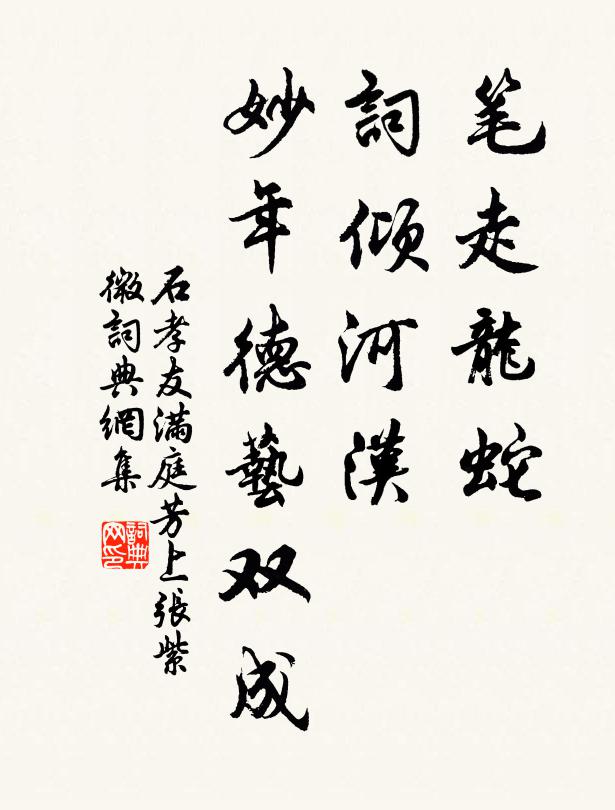 笔走龍蛇
詞傾河漢
妙年德藝双成
石孝友滿庭芳上張紫
微詞典網集
詞典
网印